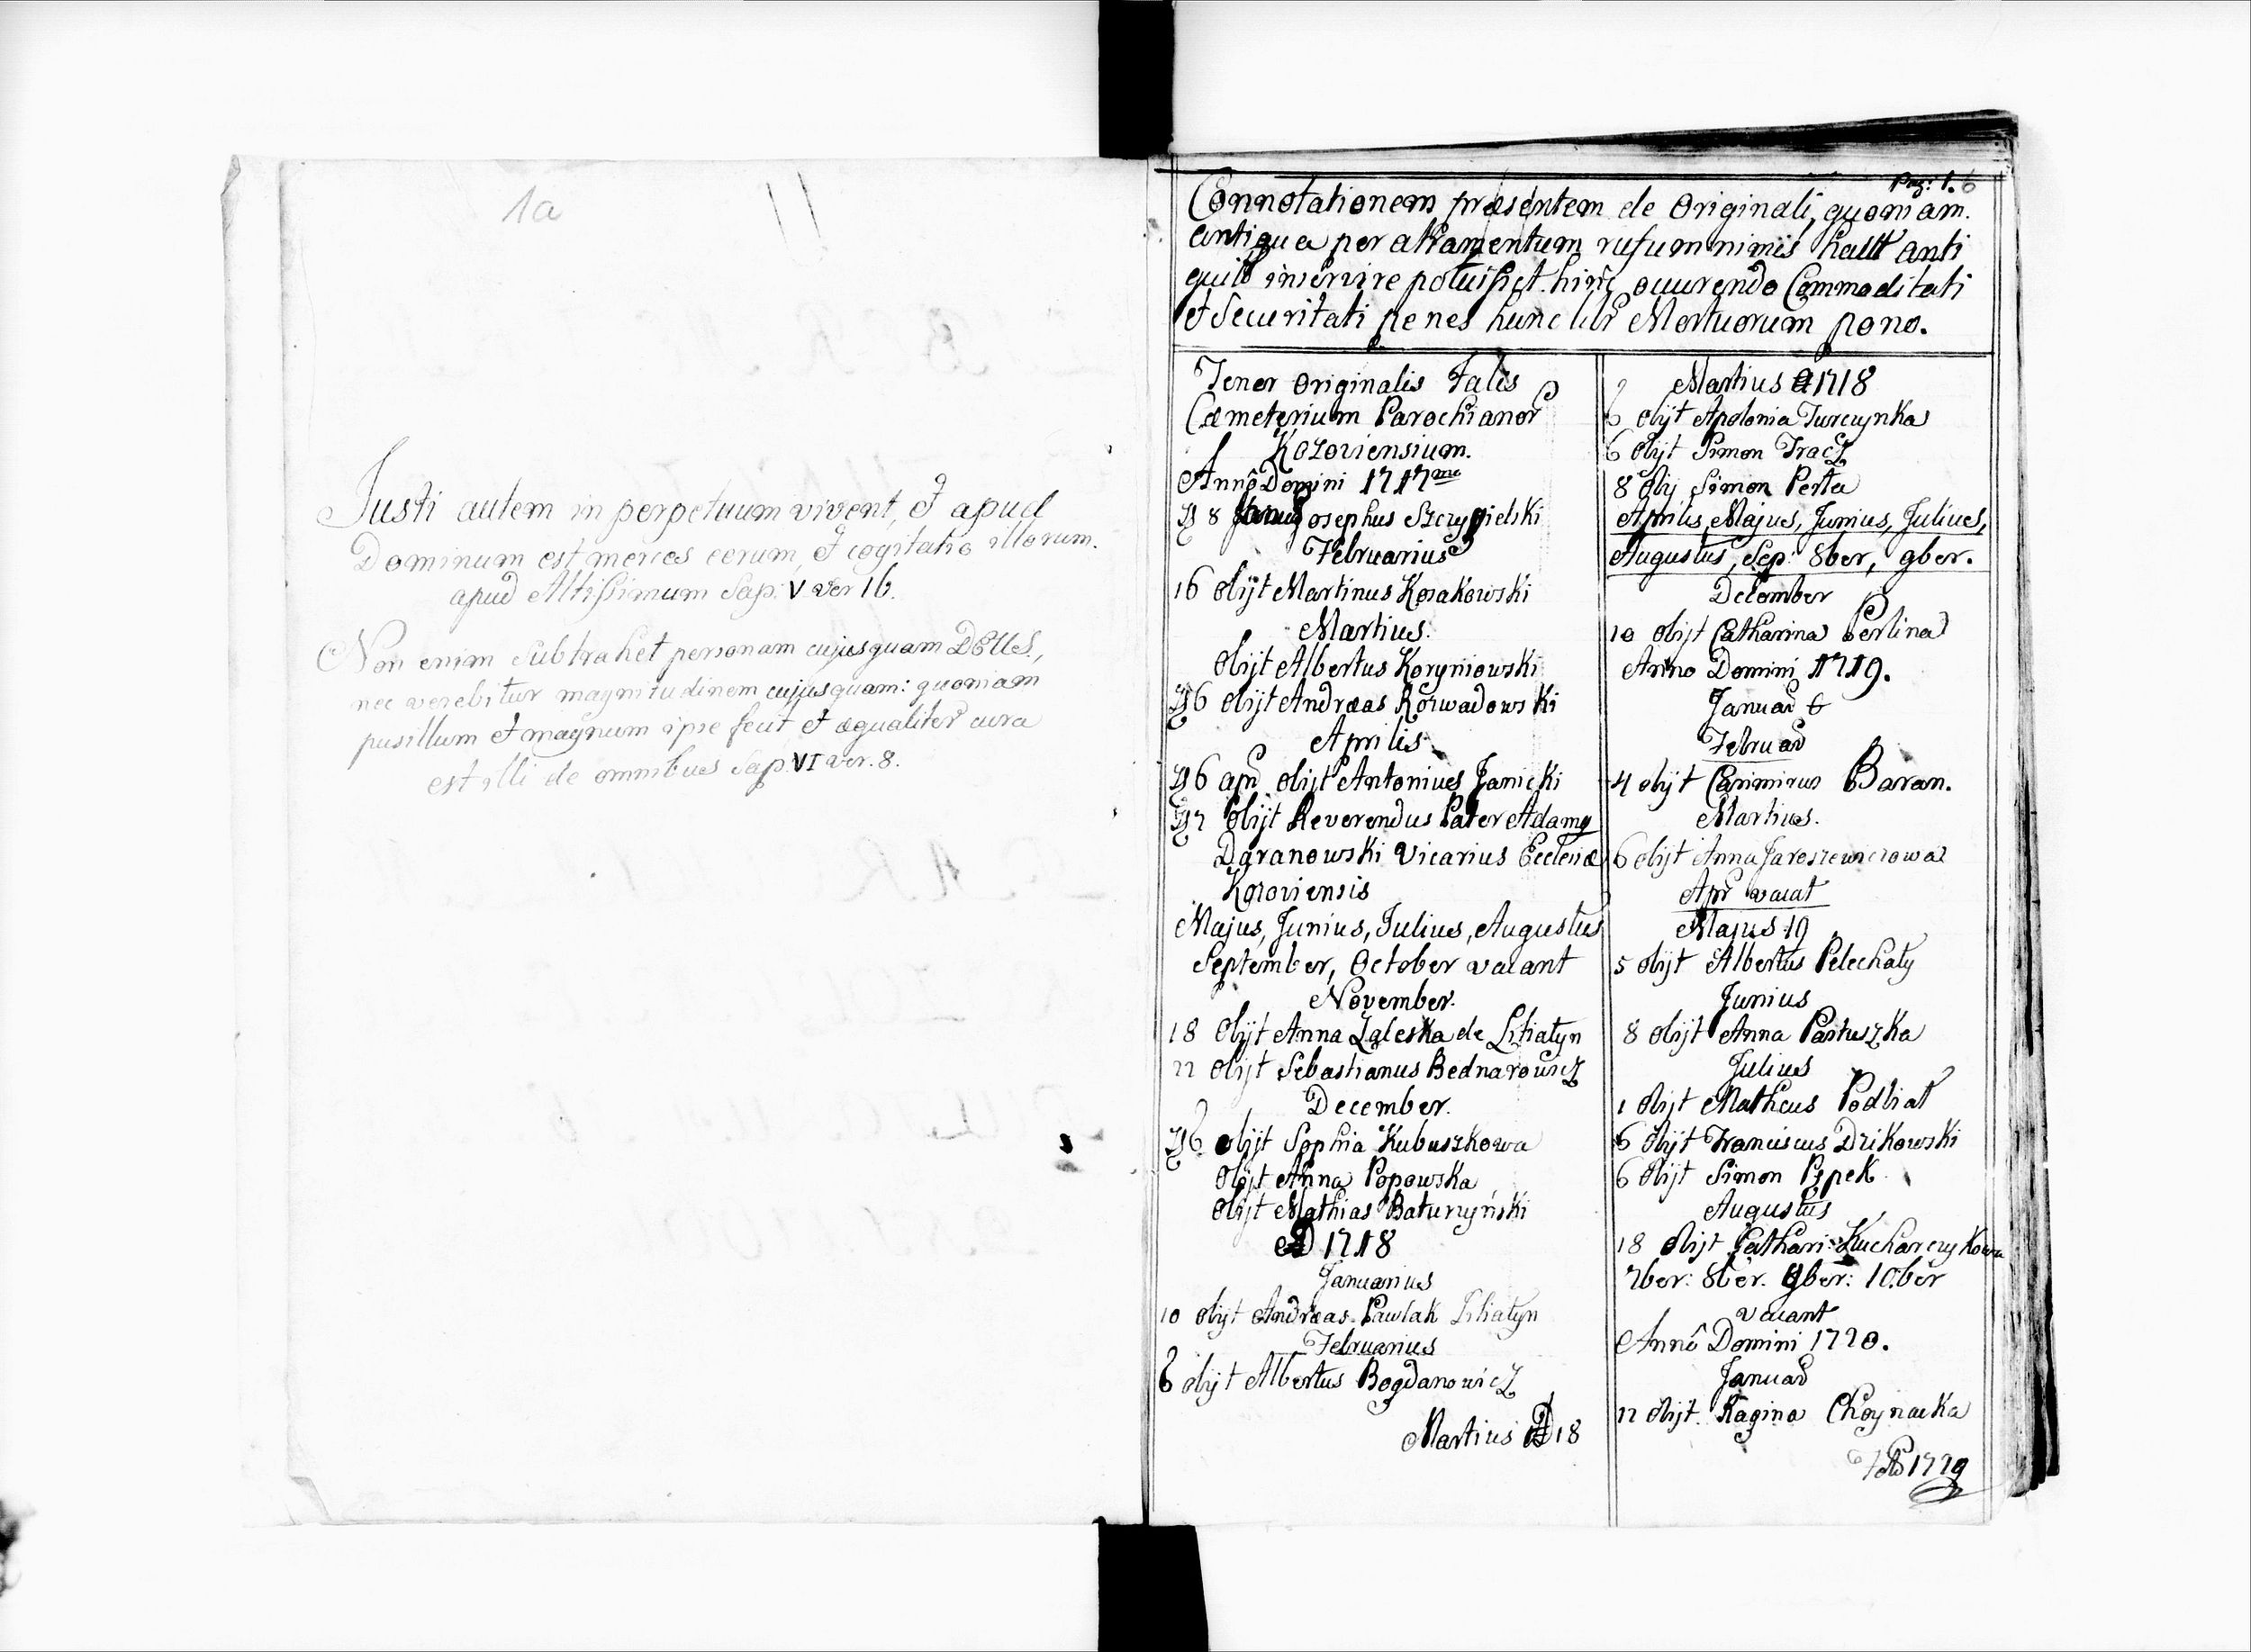 1a
Justi autem in perpetuum vivent, et apud
Dominum est merces eorum, et cogitatio illorum.
apud Altissimum Sap: V ver 16.
Non enim subtrahet personam cujusquam DEUS,
nec verebitur magnitudinem cujusquam: quoniam
pusillum et magnum ipse fecit et æqualiter cura
est illi de omnibus Sap. VI ver. 8.
Pag: 1. 6
Connotationem præsentem de Originali, quoniam
antiqua per atramentum rufum nimis haut anti
inservire potuisset. hinc occurendo Commoditati
et Securitati penes hunc libr Mortuorum pono.
Tenor originalis Talis
Cæmeterium Parochianor
Kozoviensium.
Annô Domini 1717mo
8 Josephus Szczygielski
Februarius
16 obijt Martinus Kosakowski
Martius.
obijt Albertus Koryniowski
6 obijt Andræas Rozwadowski
Aprilis
6 apr obijt Antonius Janicki
obijt Reverendus Pater Adamg
Daranowski Vicarius Ecclesiæ
Kozoviensis
Majus, Junius, Julius, Augustus
September, October vacant
November.
18 obijt Anna Zaleska de Litiatyn
22 obijt Sebastianus Bednarowicz
December.
6 obijt Sophia Kubuszkowa
obijt Anna Popowska
obijt Mathias Baturzyński
AD 1718
Januarius
10 obijt Andræas Pawlak Litiatyn
Februarius
6 obijt Albertus Bogdanowicz
Martius AD 18
Martius A 1718
6 obijt Apolonia Turczynka
6 obijt Simon Tracz
8 obij Simon Perta
Aprilis, Majus, Junius, Julius,
Augustus, Sep: 8ber, 9ber.
December
10 obijt Catharina Perlina
Anno Domini 1719.
Januar et
Februar
4 obijt Casimirus Baran.
Martius.
6 obijt Anna Jaroszewiczowa
Apr vacat
Majus 19
5 obijt Albertus Pelechaty
Junius
8 obijt Anna Pastuszka
Julius
1 obijt Matheus Podbiat
6 obijt Franciscus Dzikowski
6 obijt Simon Pępek
Augustus
18 obijt Cathari: Kucharczykowa
7ber: 8ber. 9ber: 10.ber
vacant
Annô Domini 1720.
Januar
12 obijt Ragina Choynacka
1720